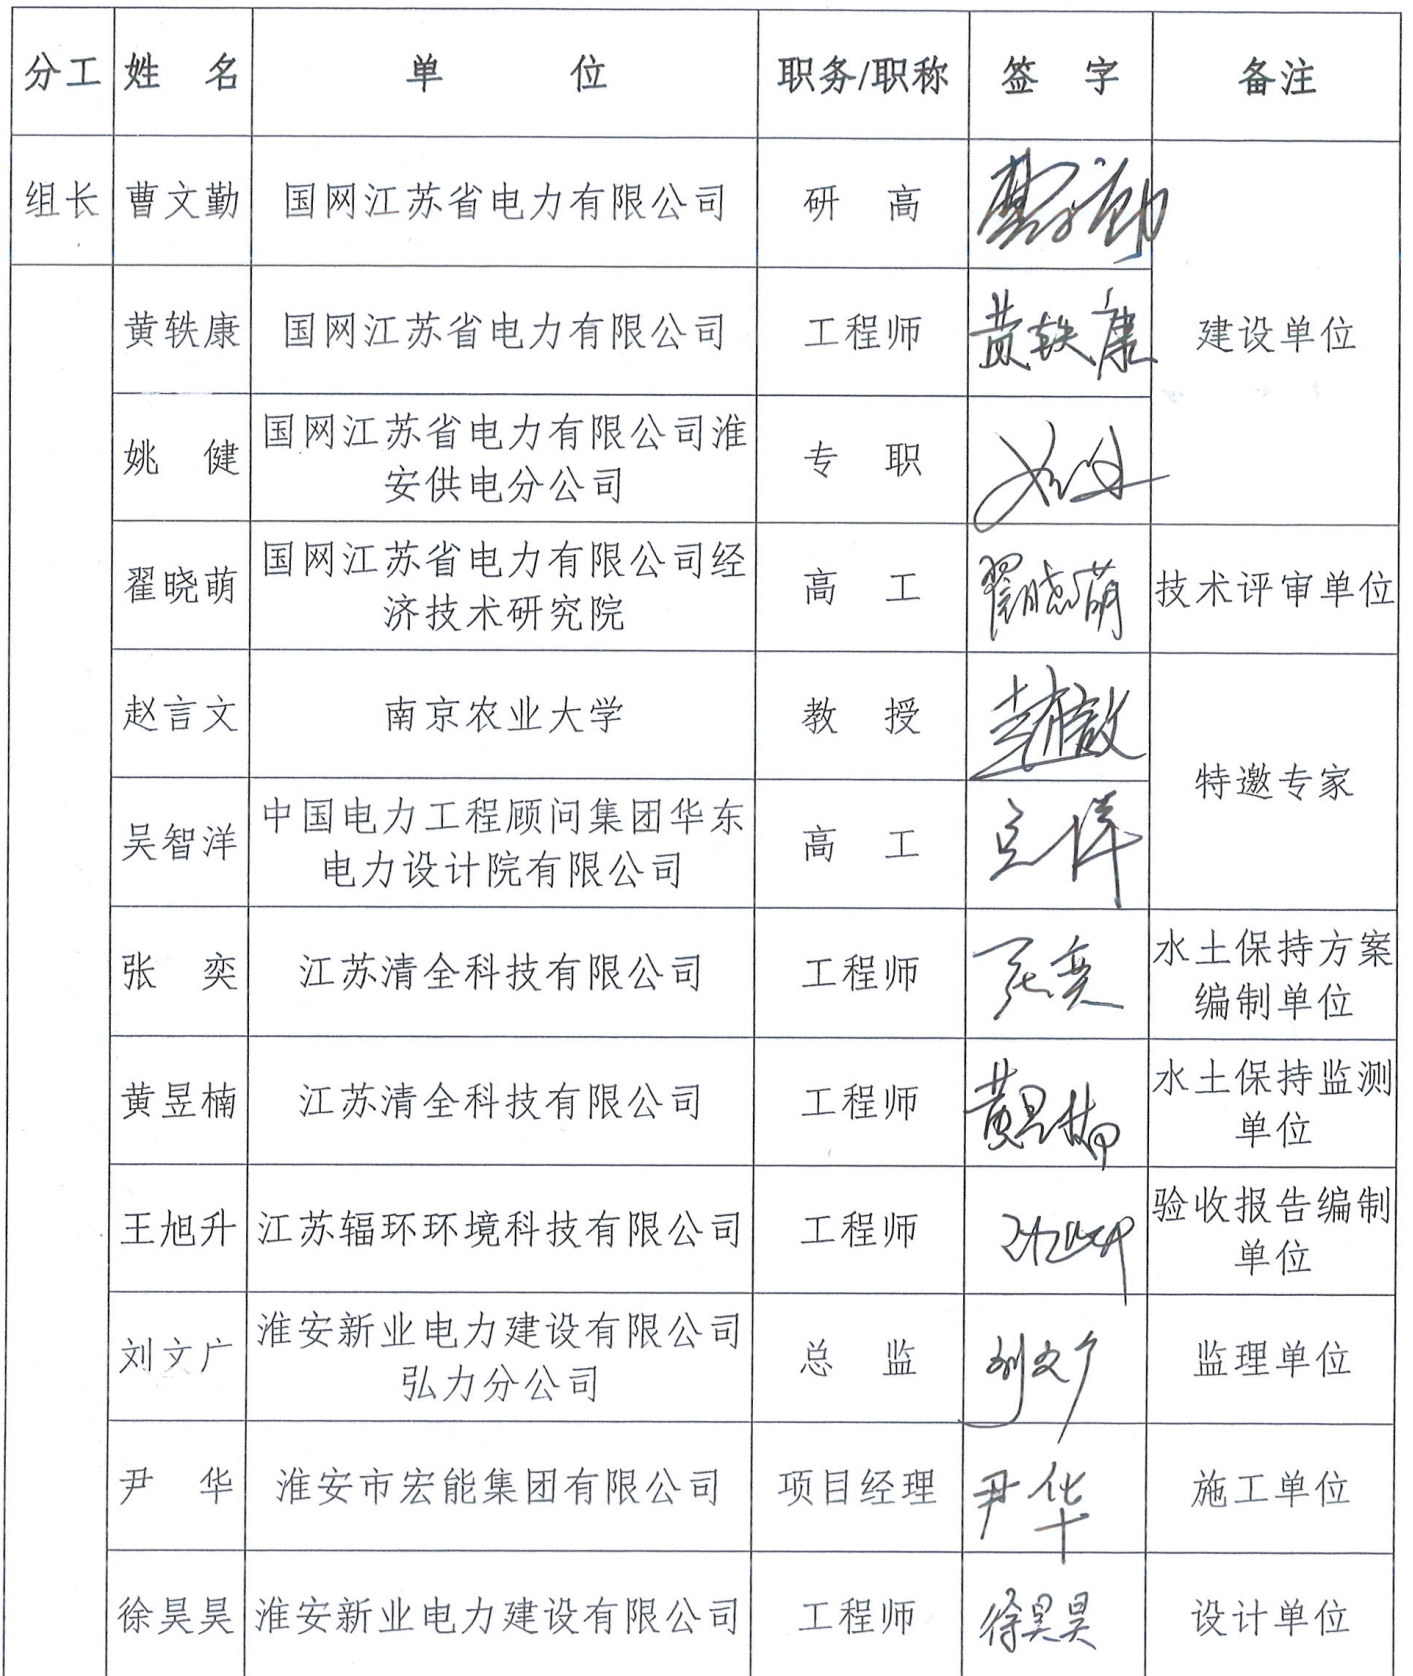 分工 姓 名 单 位 职务/职称 签 字 备注
组长 曹文勤 国网江苏省电力有限公司 研 高
黄轶康 国网江苏省电力有限公司 工程师 黄轶康 建设单位
姚 健 国网江苏省电力有限公司淮
安供电分公司 专 职
翟晓萌 国网江苏省电力有限公司经
济技术研究院 高 工 翟晓萌 技术评审单位
赵言文 南京农业大学 教 授
特邀专家
吴智洋 中国电力工程顾问集团华东
电力设计院有限公司 高 工
张 奕 江苏清全科技有限公司 工程师 张奕 水土保持方案
编制单位
黄昱楠 江苏清全科技有限公司 工程师 黄昱楠 水土保持监测
单位
王旭升 江苏辐环环境科技有限公司 工程师 验收报告编制
单位
刘文广 淮安新业电力建设有限公司
弘力分公司 总 监 刘文广 监理单位
尹 华 淮安市宏能集团有限公司 项目经理 尹华 施工单位
徐昊昊 淮安新业电力建设有限公司 工程师 徐昊昊 设计单位